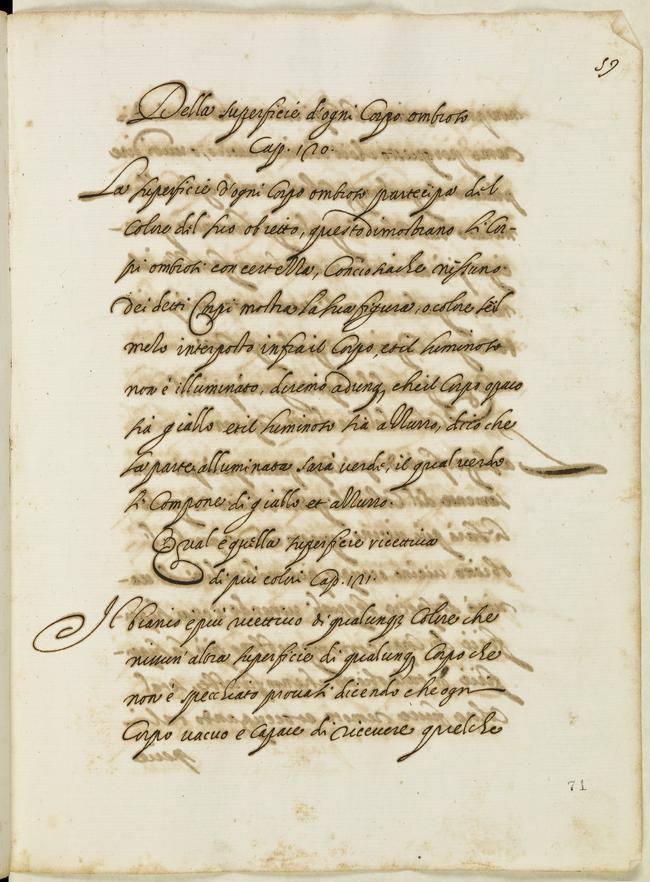 59
Della superficie d'ogni Corpo ombroso
Cap. 120.
La superficie d'ogni Corpo ombroso partecipa del
Colore del suo obietto, questo dimostrano li Cor-
pi ombrosi con certezza, Conciosiache nissuno
dei detti Corpi mostra la sua figura, o colore se il
mezo interposto infra il Corpo, et il luminoso
non è illuminato, diremo adunq, che il Corpo opaco
sia giallo et il luminoso sia azzurro, dico che
la parte alluminata sarà verde, il qual verde
si Compone di giallo et azzurro.
Qual è quella superficie ricettiva
di più colori Cap. 121.
Il bianco è più ricettivo di qualunq; Colore che
nissun' altra superficie di qualunq; Corpo che
non è specchiato provasi dicendo che ogni
Corpo vacuo è capace di ricevere quelche
71